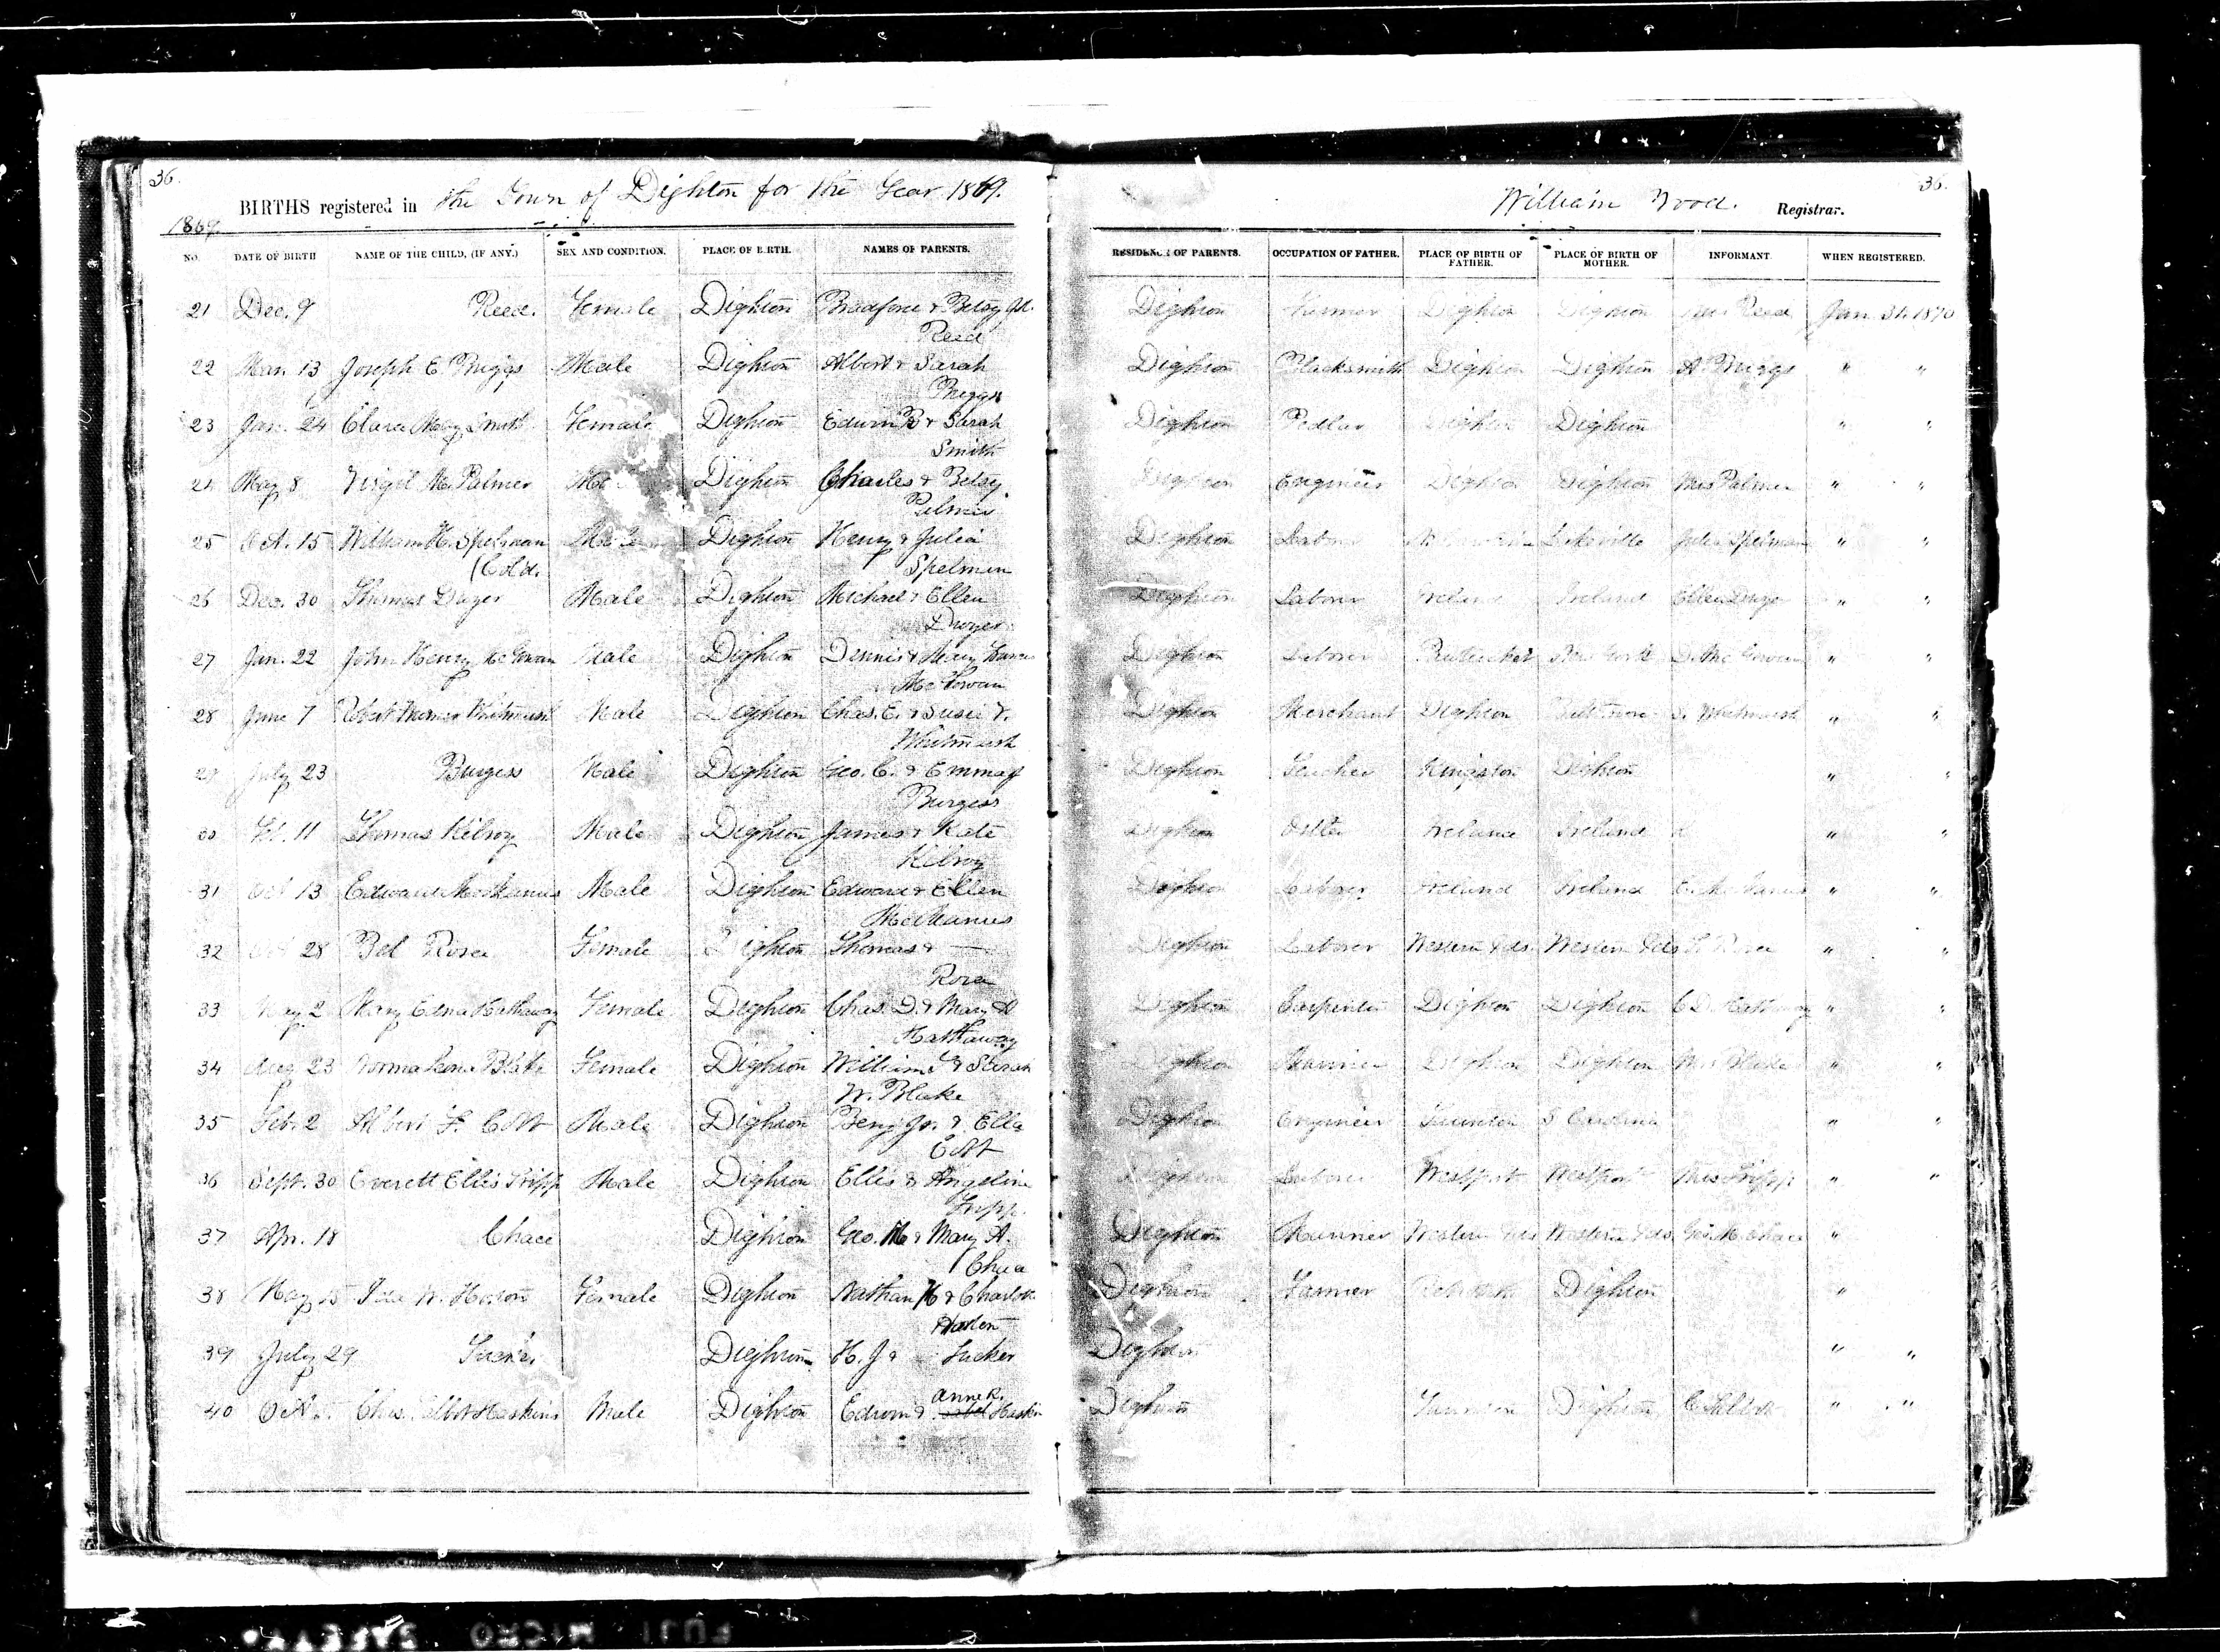 36.
BIRTHS registered in the Town of Dighton for the Year 1869.
1869.
NO. DATE OF BIRTH NAME OF THE CHILD, (IF ANY.) SEX AND CONDITION. PLACE OF BIRTH. NAMES OF PARENTS.
21 Dec. 9 Reed. Female Dighton Bradford & Betsy
Reed
22 Mar. 13 Joseph E. Briggs Male Dighton Albert & Sarah
Briggs
23 Jan. 24 Clara May Smith Female Dighton Edwin B & Sarah
Smith
24 May 8 Virgil M. Palmer Dighton Charles & Betsy
Palmer
25 Oct. 15 William H. Spelman Male Dighton Henry & Julia
(Col'd. Spelman
26 Dec. 30 Thomas Male Dighton Michael & Ellen
Dwyer
27 Jan. 22 John Henry McGowan Male Dighton Dennis & Mary
McGowan
28 June 7 Robert Whitmarsh Male Dighton Chas. E. & Susie
Whitmarsh
29 July 23 Burgess Male Dighton Geo. C. & Emma
Burgess
30 11 Thomas Kilroy Male Dighton James & Kate
Kilroy
31 Oct 13 Edward McManus Male Dighton Edward & Ellen
McManus
32 28 Bel Rosa Female Dighton Thomas & —
Rosa
33 May 2 Mary Edna Hathaway Female Dighton Chas. D. & Mary A
Hathaway
34 Aug 23 Blake Female Dighton William & Sarah
W. Blake
35 Feb. 2 Albert F. Male Dighton Benj. Jr. & Ella
36 Sept. 30 Everett Ellis Tripp Male Dighton Ellis & Angeline
Tripp.
37 Apr. 18 Chace Dighton Geo. M & Mary A.
38 May Ida W. Horton Female Dighton Nathan H & Charlotte
Horton
39 July 29 Tucker Dighton H. J & Tucker
Anne R.
40 Oct. Chas. Haskins Male Dighton Edwin &
36.
William Wood. Registrar.
RESIDENCE OF PARENTS. OCCUPATION OF FATHER. PLACE OF BIRTH OF FATHER. PLACE OF BIRTH OF MOTHER. INFORMANT. WHEN REGISTERED.
Dighton Farmer Dighton Dighton Reed Jan. 31. 1870
Dighton Blacksmith Dighton Dighton A Briggs " "
Dighton Pedlar Dighton Dighton " "
Dighton Engineer Dighton Dighton Mrs Palmer " "
Dighton Labor Lakeville Julia Spelman " "
Dighton Laborer Ireland Ireland Ellen " "
Dighton Laborer Pawtucket New York D. McGowan " "
Dighton Merchant Dighton Baltimore S. Whitmarsh " "
Dighton Teacher Kingston Dighton " "
Dighton Ostler Ireland Ireland " "
Dighton Laborer Ireland Ireland E. McManus " "
Dighton Laborer Western Isds. Western Isds T. Rosa " "
Dighton Carpenter Dighton Dighton C. D. Hathaway " "
Dighton Mariner Dighton Dighton Blake " "
Dighton Engineer Taunton S. Carolina " "
Dighton Laborer Westport Westport Mrs Tripp " "
Dighton Mariner Western Isds Western Isds. Geo. M. Chace "
Dighton Farmer Rehoboth Dighton "
Dighton " "
Dighton Taunton Dighton " "